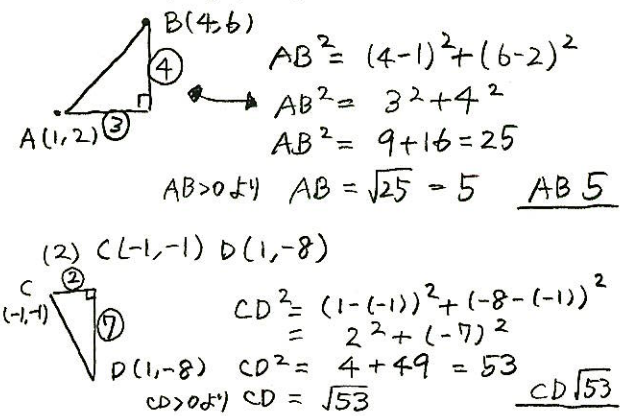 B(4,6)
④
A(1,2) ③
AB²= (4-1)²+(6-2)²
AB²= 3²+4²
AB²= 9+16=25
AB>0より AB=√25 = 5 AB 5
(2) C(-1,-1) D(1,-8)
C ②
(-1,-1) ⑦
D(1,-8)
CD²= (1-(-1))²+(-8-(-1))²
= 2²+(-7)²
CD²= 4+49 = 53
CD>0より CD = √53 CD√53